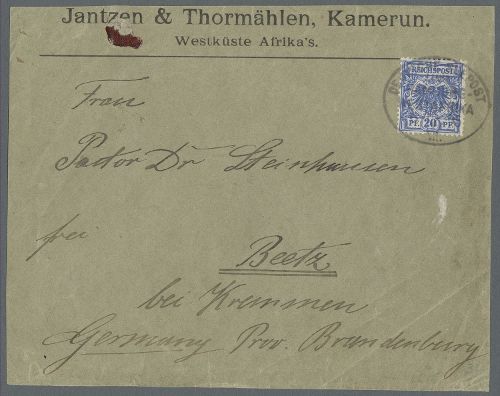 Jantzen & Thormählen, Kamerun.
Westküste Afrika's.
REICHSPOST
PF. 20 PF.
POST
KA
Frau
Pastor Dr Steinhausen
frei
Beetz
bei Kremmen
Germany Prov. Brandenburg